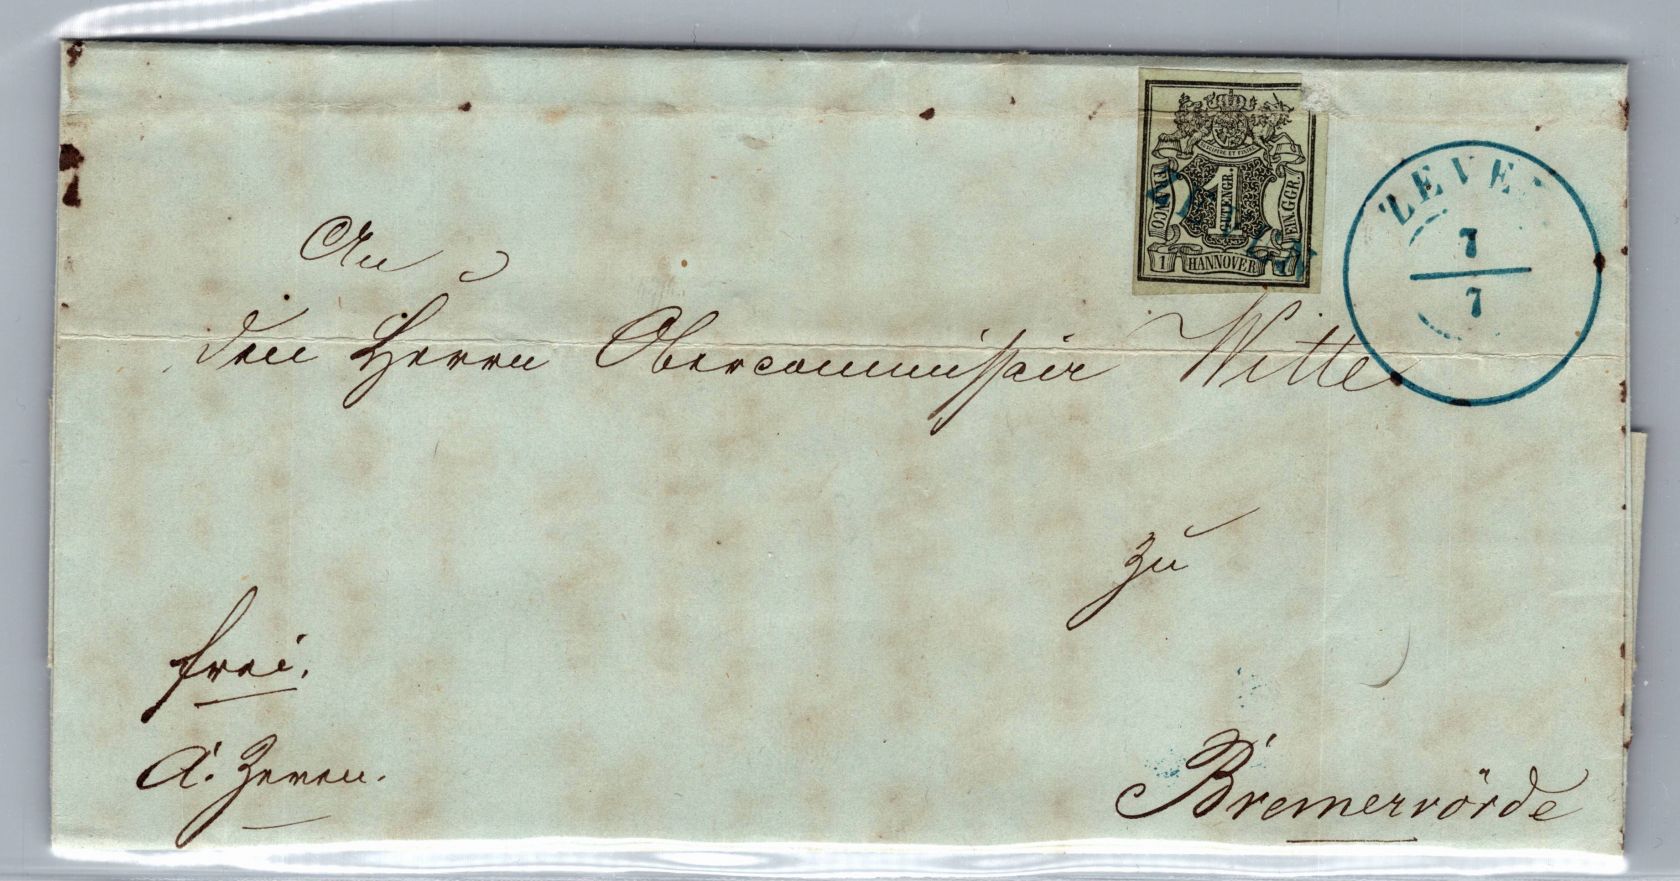 FRANCO.
1
GUTENGR.
EIN.GGR.
1
HANNOVER
1
ZEVE
7
7
An
den Herrn Obercommissair Witte
zu
frei.
A. Zeven.
Bremervörde